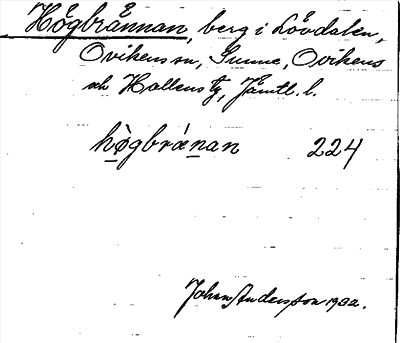 Högbrännan, berg i Lövdalen,
Ovikens sn, Sunne, Ovikens
och Hallens tg, Jämtl. l.
hògbránan 224
Johan Andersson 1932.